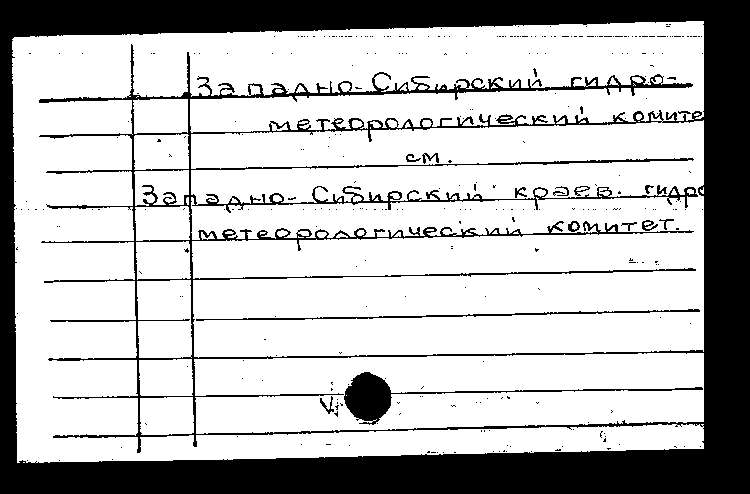 Западно-Сибирский гидро-
метеорологический комите
см.
Западно-Сибирский краев. гидро
метеорологический комитет.